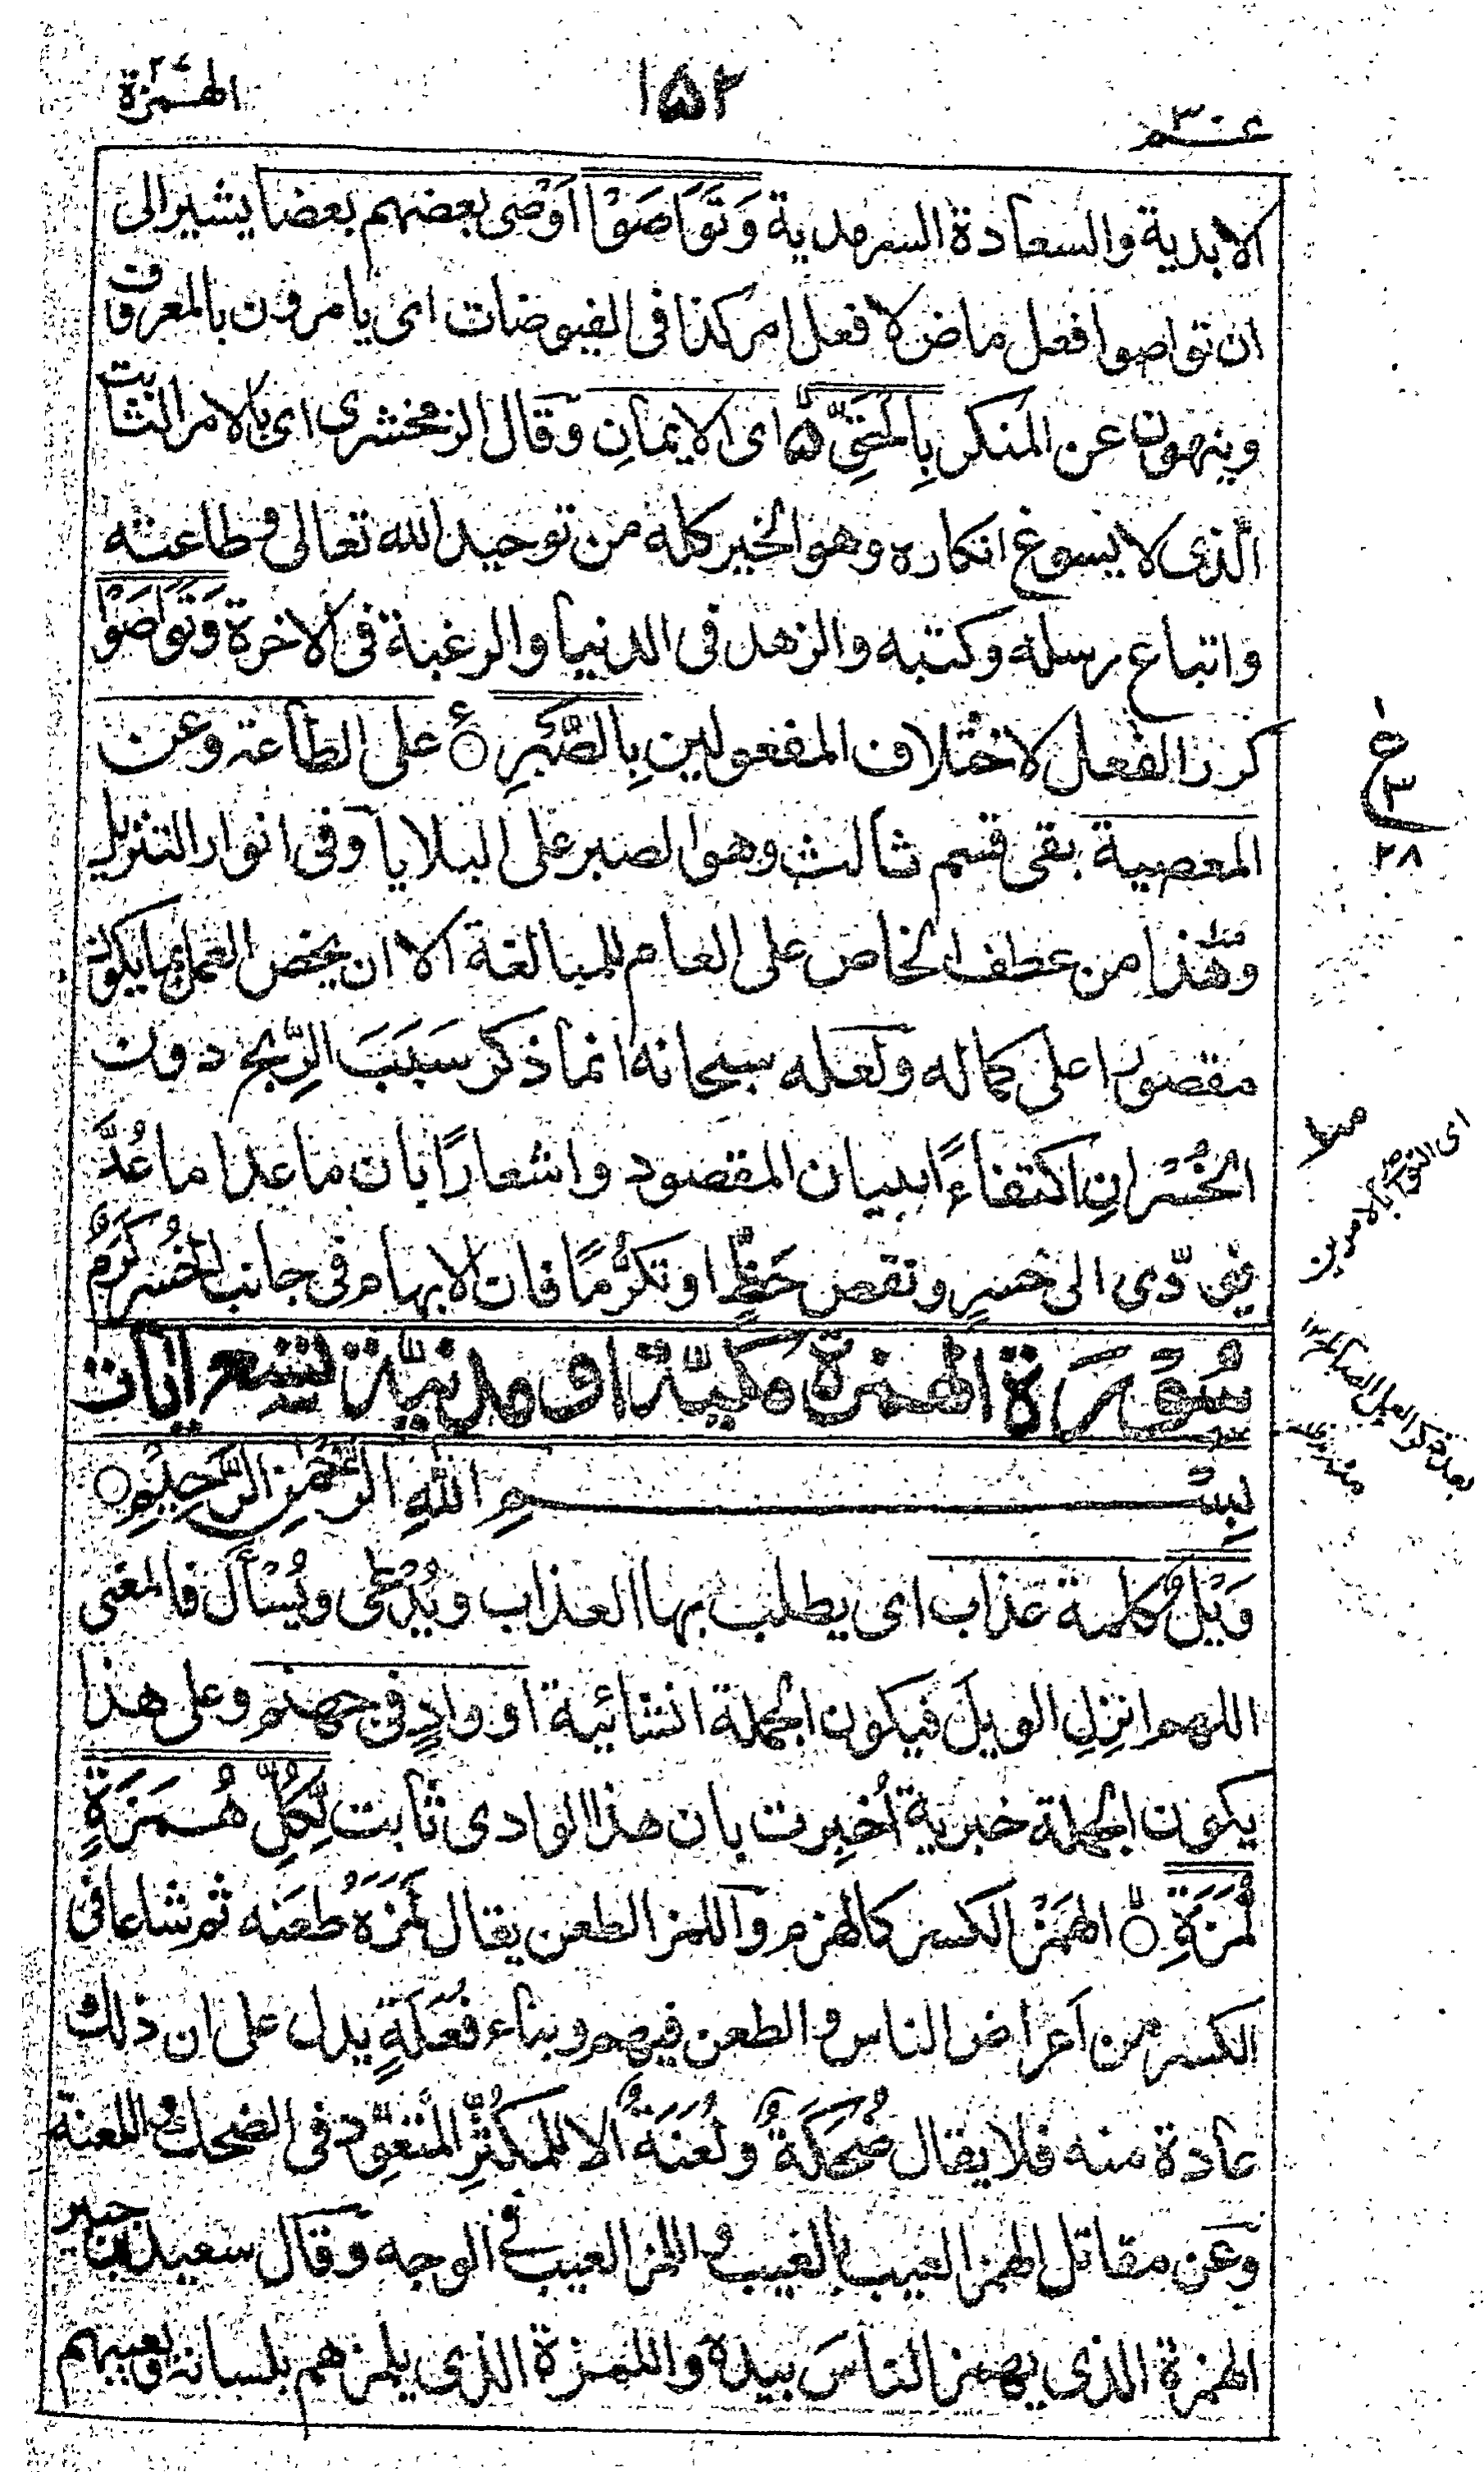 عــم ٣٠
١٥٢
الهمزة ٢٤
الابدية والسعادة السرمدية وَتَوَاصَوْا اَوْصٰى بعضهم بعضا يشير الى
ان تواصوا فعل ماض لا فعل امر كذا فى الفيوضات اى يامرون بالمعروف
وينهون عن المنكر بِالْحَقِّ ۵ اى الايمانِ وقال الزمخشرى اى بالامر الثابت
الّذى لا يسوغ انكاره وهو الخير كله من توحيد الله تعالى وطاعته
واتباع رسله وكتبه والزهد فى الدنيا والرغبة فى الاخرة وَتَوَاصَوْا
كرر الفعل لاختلاف المفعولين بِالصَّبْرِ ○ على الطاعة وعن
المعصية بقى قسم ثالث وهو الصبر على البلايا وفى انوار التنزيل
وهذا من عطف الخاص على العام للمبالغة الا ان يخص العمل بما يكون
مقصورا على كماله ولعله سبحانه انما ذكر سَبَبَ الرِّبح دون
الخُسْرانِ اكتفاءً ببيان المقصود واشعارًا بان ما عدا ما عُدَّ
يؤدّى الى خسرٍ ونقص حَظٍّ او تكرُّمًا فان الابهام فى جانب الخُسر كَرَمٌ
سُوْرَةُ الهمزة مَكيّة او مدنيّة تسع اٰيات
بِسْــمِ اللّٰهِ الرَّحْمٰنِ الرَّحِيْمِ ○
وَيْلٌ كلمة عذاب اى يطلب بها العذاب ويُدْعٰى ويُسْأَل فالمعنى
اللهم انزِلِ الويلَ فيكون الجملة انشائية او وادٍ فى جهنم وعلى هذا
يكون الجملة خبرية اُخبِرت بان هذا الوادى ثابت لِّكُلِّ هُمَزَةٍ
لُّمَزَةِ ○ الهَمْزُ الكسر كالهزم واللمز الطعن يقال لَمَزَهُ طَعَنه ثم شاعا فى
الكسر من اَعراض الناس والطعن فيهم وبناء فُعَلَةٍ يدل على ان ذلك
عادة منه فلا يقال ضُحَكَةٌ ولُعَنَةٌ الا للمُكثِّرِ المتعوِّد فى الضحك واللعنة
وعن مقاتل الهمز العيب بالغيب واللمز العيب فى الوجه وقال سعيد بن جبير
الهمزة الذى يهمز الناسَ بيده واللمزة الذى يلمزهم بلسانه ويعيبهم
١
ع
٣
٢٨
اى التواصى بالامرين
بعد ذكر العمل الصالح ١٢